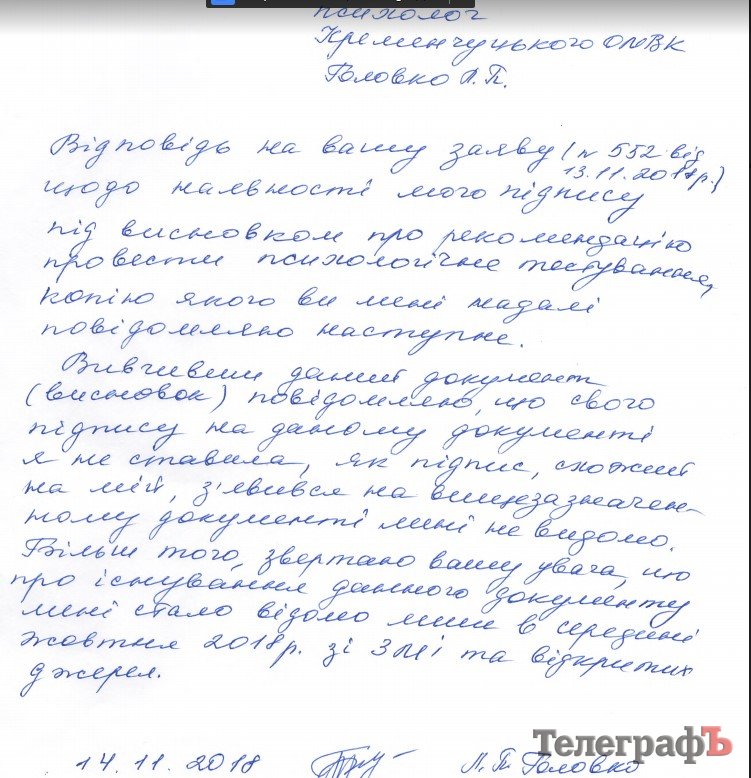 психолог
Кременчуцького ОМВК
Головко Л.П.
Відповідь на вашу заяву (№ 552 від
13.11.2018р.)
щодо наявності мого підпису
під висновком про рекомендацію
провести психологічне тестування,
копію якого ви мені надалі
повідомляю наступне.
Вивчивши даний документ
(висновок) повідомляю, що свого
підпису на даному документі
я не ставила, як підпис, схожий
на мій, з'явився на вищезазначен-
ному документі мені не видомо.
Більш того, звертаю вашу увага, що
про існування данного документу
мені стало відомо лише в середині
жовтня 2018р. зі ЗМІ та відкритих
джерел.
14.11.2018 Л.П. Головко
ТелеграфЪ